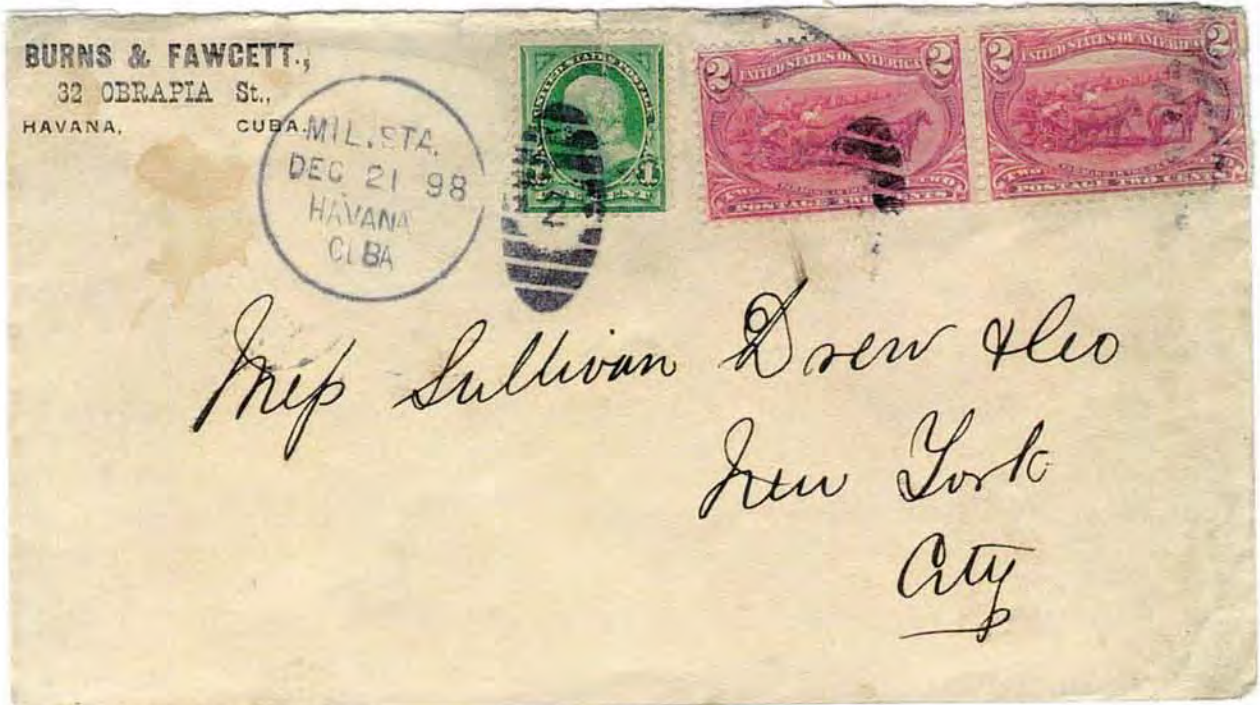 BURNS & FAWCETT.,
32 OBRAPIA St.,
HAVANA, CUBA.
MIL. STA.
DEC 21 98
HAVANA
CUBA
2
UNITED STATES POSTAGE
1 1
ONE CENT
2 2
UNITED STATES OF AMERICA
TWO TWO
POSTAGE TWO CENTS
2 2
UNITED STATES OF AMERICA
TWO
POSTAGE TWO CENTS
Mess Sullivan Drew & Co
New York
City